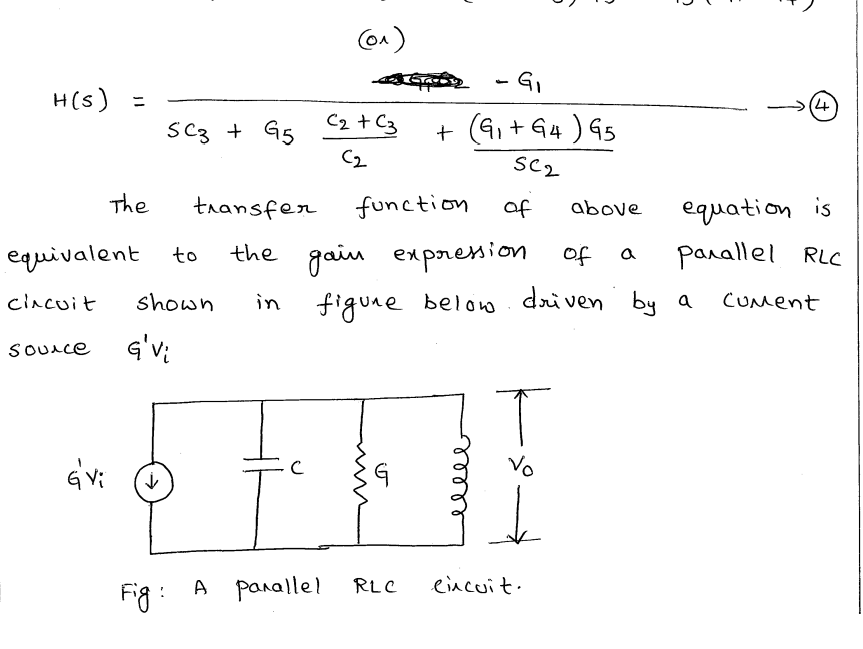 (or)
- G1
H(s) = ――――― → ④
SC3 + G5 C2 + C3 / C2 + (G1 + G4) G5 / SC2
The transfer function of above equation is
equivalent to the gain expression of a parallel RLC
circuit shown in figure below driven by a current
source G'Vi
G'Vi
C
G
Vo
Fig: A parallel RLC circuit.